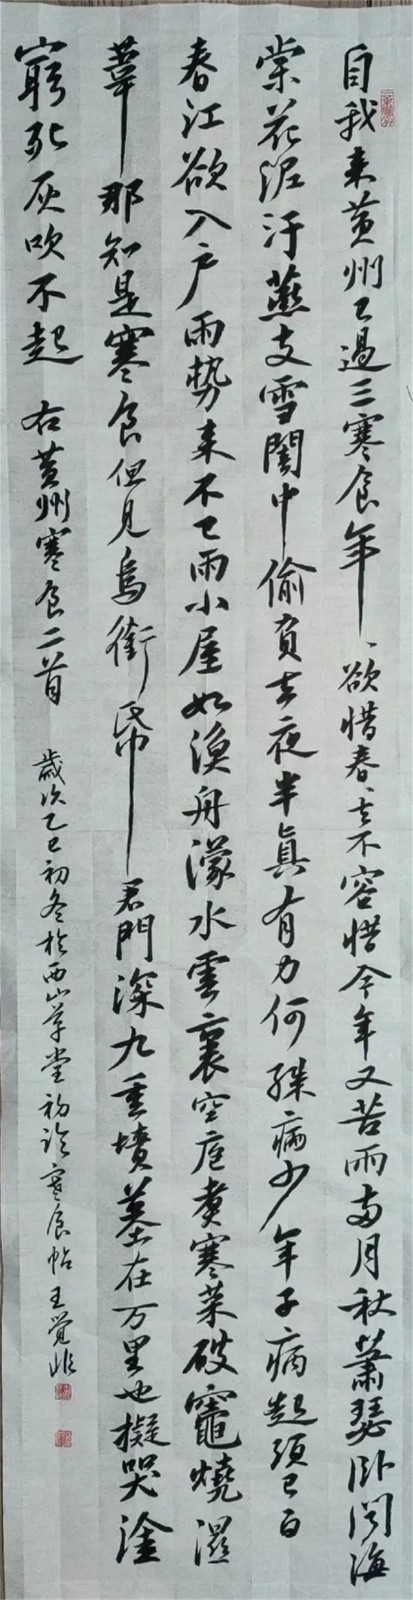 自我来黄州已過三寒食年、欲惜春、去不容惜今年又苦雨両月秋蕭瑟卧闻海
棠花泥汙燕支雪闇中偷負去夜半真有力何殊病少年子病起頭已白
春江欲入户雨勢来不已雨小屋如漁舟濛水雲裏空庖煮寒菜破竈燒濕
葦那知是寒食但見烏銜帋君門深九重墳墓在万里也擬哭塗
窮死灰吹不起 右黄州寒食二首
歲次乙巳初冬於西山草堂初临寒食帖王觉非